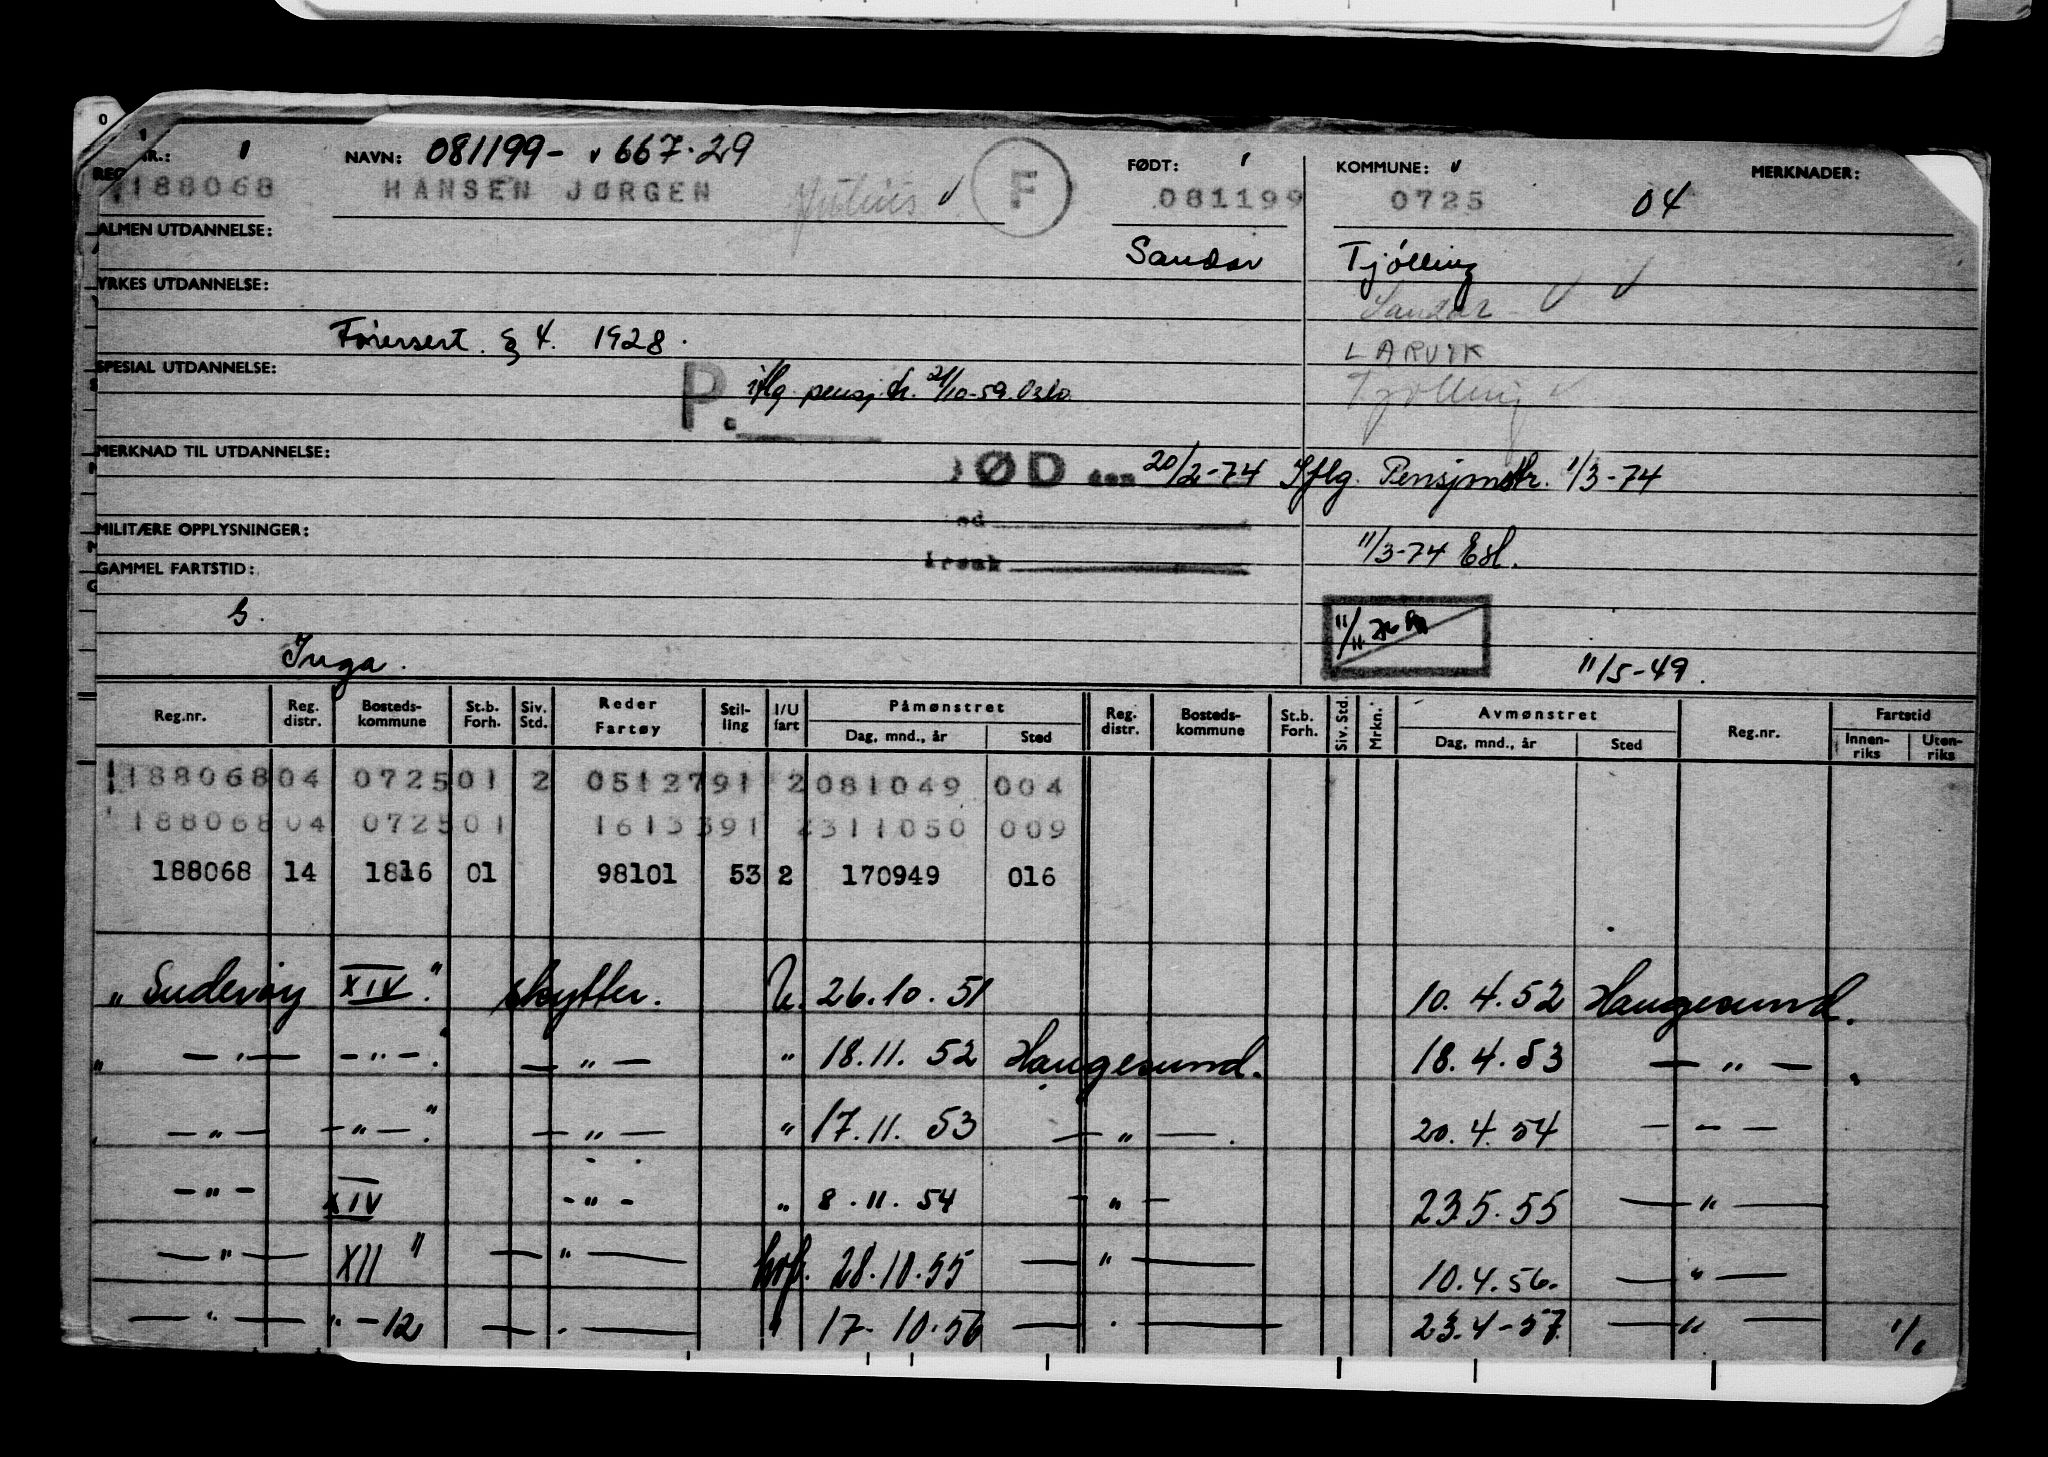 REG. NR.: NAVN: 081199- 667.29 F FØDT: KOMMUNE: MERKNADER:
188068 HANSEN JØRGEN Julius 081199 0725 04
ALMEN UTDANNELSE: Sandar Tjölling
YRKES UTDANNELSE: Sandar
Förersert. § 4. 1928. LARVIK
SPESIAL UTDANNELSE: P. iflg. pensj.tr. 21/10-59. Oslo. Tjölling
MERKNAD TIL UTDANNELSE: ØD den 20/2-74 Iflg. Pensjonstr. 1/3-74
MILITÆRE OPPLYSNINGER: ed
11/3-74
GAMMEL FARTSTID: årsak
G.
11/11
Inga. 11/5-49.
Reg.nr. Reg. distr. Bosteds-kommune St.b. Forh. Siv. Std. Reder Fartøy Stil-ling I/U fart Påmønstret Dag, mnd., år Sted Reg. distr. Bosteds-kommune St.b. Forh. Siv. Std. Mrkn. Avmønstret Dag, mnd., år Sted Reg.nr. Fartstid Innen-riks Uten-riks
188068 04 0725 01 2 05127 91 2 081049 004
188068 04 0725 01 16133 91 2 311050 009
188068 14 1816 01 98101 53 2 170949 016
" Suderøy XIV." skytter. U. 26.10.51 10.4.52 Haugesund.
" — " — - " -. — " — " 18.11.52 Haugesund. 18.4.53 — " —.
— " — - " -." — " — " 17.11.53 — " —. 20.4.54 — - —
- " - XIV - " - " 8.11.54 - " - 23.5.55 — " —
— " — XII " — " — hvf. 28.10.55 — " — 10.4.56. — " —
— " — " - 12 — " — " 17-10.56 — " — 23.4-57. — " — 1/1